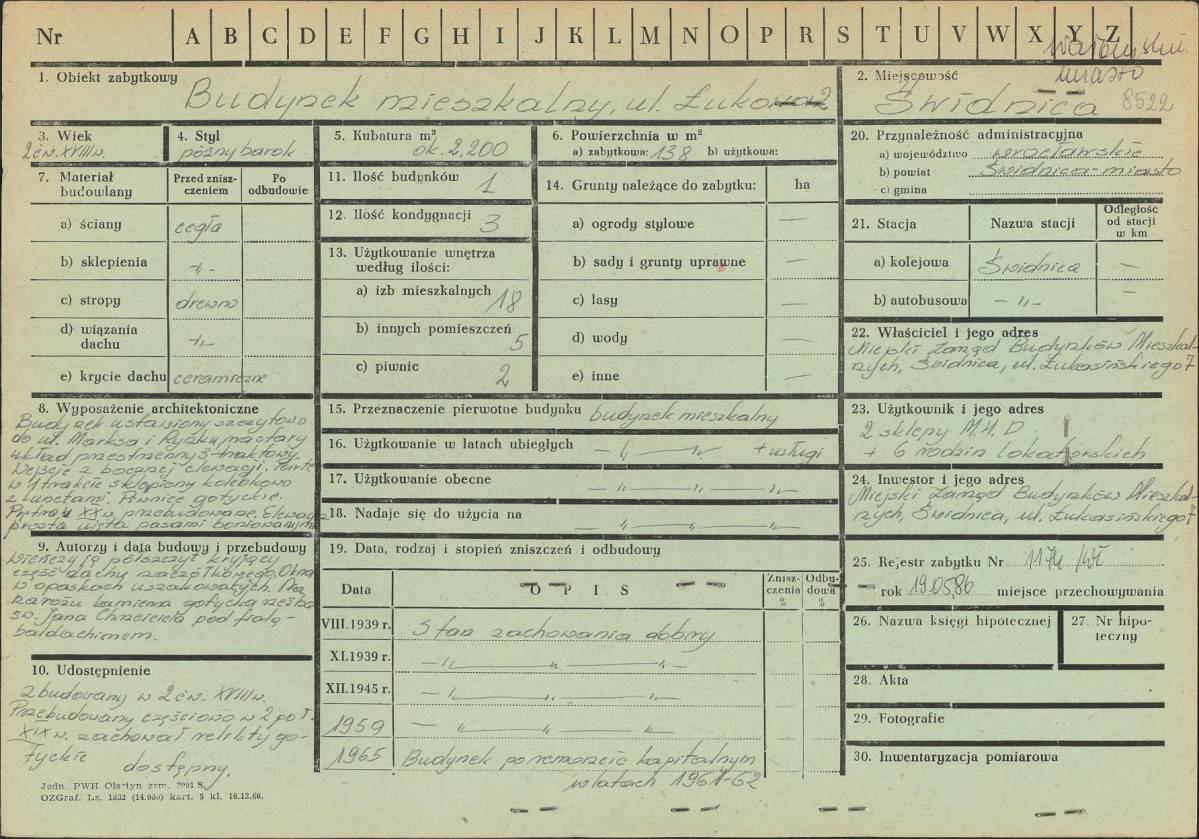 Nr A B C D E F G H I J K L M N O P R S T U V W X Y Z
miasto
1. Obiekt zabytkowy
Budynek mieszkalny, ul. Łukowa 2
2. Miejscowość
Świdnica 8522
3. Wiek
2 ćw. XVIII w.
4. Styl
późny barok
5. Kubatura m³
ok. 2,200
6. Powierzchnia w m²
a) zabytkowa: 138 b) użytkowa:
20. Przynależność administracyjna
a) województwo wrocławskie
b) powiat Świdnica-miasto
c) gmina
7. Materiał budowlany
Przed zniszczeniem
Po odbudowie
a) ściany cegła
b) sklepienia -„-
c) stropy drewno
d) wiązania dachu -„-
e) krycie dachu ceramiczne
11. Ilość budynków 1
12. Ilość kondygnacji 3
13. Użytkowanie wnętrza
według ilości:
a) izb mieszkalnych 18
b) innych pomieszczeń 5
c) piwnic 2
14. Grunty należące do zabytku: ha
a) ogrody stylowe —
b) sady i grunty uprawne —
c) lasy —
d) wody —
e) inne —
21. Stacja Nazwa stacji Odległość od stacji w km
a) kolejowa Świdnica —
b) autobusowa -„- —
22. Właściciel i jego adres
Miejski Zarząd Budynków Mieszkal-
nych, Świdnica, ul. Łukasińskiego 7
8. Wyposażenie architektoniczne
Budynek ustawiony szczytowo
do ul. Marksa i Rynku, ma stary
układ przestrzenny 3-traktowy.
Wejście z bocznej elewacji. Parter
w 1 trakcie sklepiony kolebkowo
z lunetami. Piwnice gotyckie.
XX w. przebudowane. Elewacja
prosta ujęta pasami boniowanymi
9. Autorzy i data budowy i przebudowy
Wieńczy ją półszczyt kryjący
część dachu naczółkowego. Okna
w opaskach uszakowatych. Na
narożu kamienna gotycka rzeźba
św. Jana Chrzciciela pod fialą-
baldachimem.
10. Udostępnienie
zbudowany w 2 ćw. XVIII w.
Przebudowany częściowo w 2 poł.
XIX w. zachował relikty go-
tyckie
dostępny.
15. Przeznaczenie pierwotne budynku budynek mieszkalny
16. Użytkowanie w latach ubiegłych -„- -„- + usługi
17. Użytkowanie obecne -„- -„- -„-
18. Nadaje się do użycia na -„- -„- -„-
19. Data, rodzaj i stopień zniszczeń i odbudowy
Data OPIS Zniszczenia % Odbudowa %
VIII.1939 r. Stan zachowania dobry
XI.1939 r. -„- -„- -„-
XII.1945 r. -„- -„- -„-
1959 -„- -„- -„-
1965 Budynek po remoncie kapitalnym
w latach 1961-62
23. Użytkownik i jego adres
2 sklepy M.H.D
+ 6 rodzin lokatorskich
24. Inwestor i jego adres
Miejski Zarząd Budynków Mieszkal-
nych, Świdnica, ul. Łukasińskiego 7
25. Rejestr zabytku Nr 1174/Wł
rok 19.05.86 miejsce przechowywania
26. Nazwa księgi hipotecznej
27. Nr hipoteczny
28. Akta
29. Fotografie
30. Inwentaryzacja pomiarowa
Jedn. PWH Olsztyn zam. 2091 S
OZGraf. Lz. 1832 (14.000) kart. 5 kl. 16.12.66.